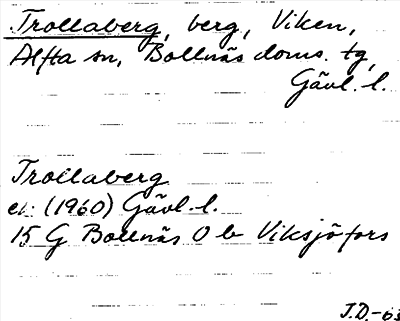 Trollaberg, berg, Viken,
Alfta sn, Bollnäs doms. tg,
Gävl. l.
Trollaberg
ek (1960) Gävl. l.
15 G Bollnäs O b Viksjöfors
J.D.-63